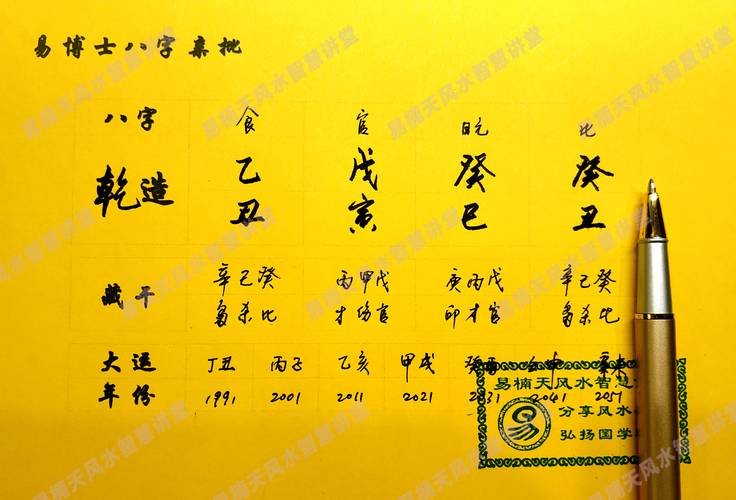 易博士八字亲批
八字 食 官 日元 比
乾造 乙 戊 癸 癸
丑 寅 巳 丑
藏干 辛己癸 丙甲戊 庚丙戊 辛己癸
枭杀比 才伤官 印才官 枭杀比
大运 丁丑 丙子 乙亥 甲戌 癸酉 壬申 辛未
年份 1991 2001 2011 2021 2031 2041 2051
易楠天风水智慧
分享风水
弘扬国学
易
易楠天风水智慧讲堂